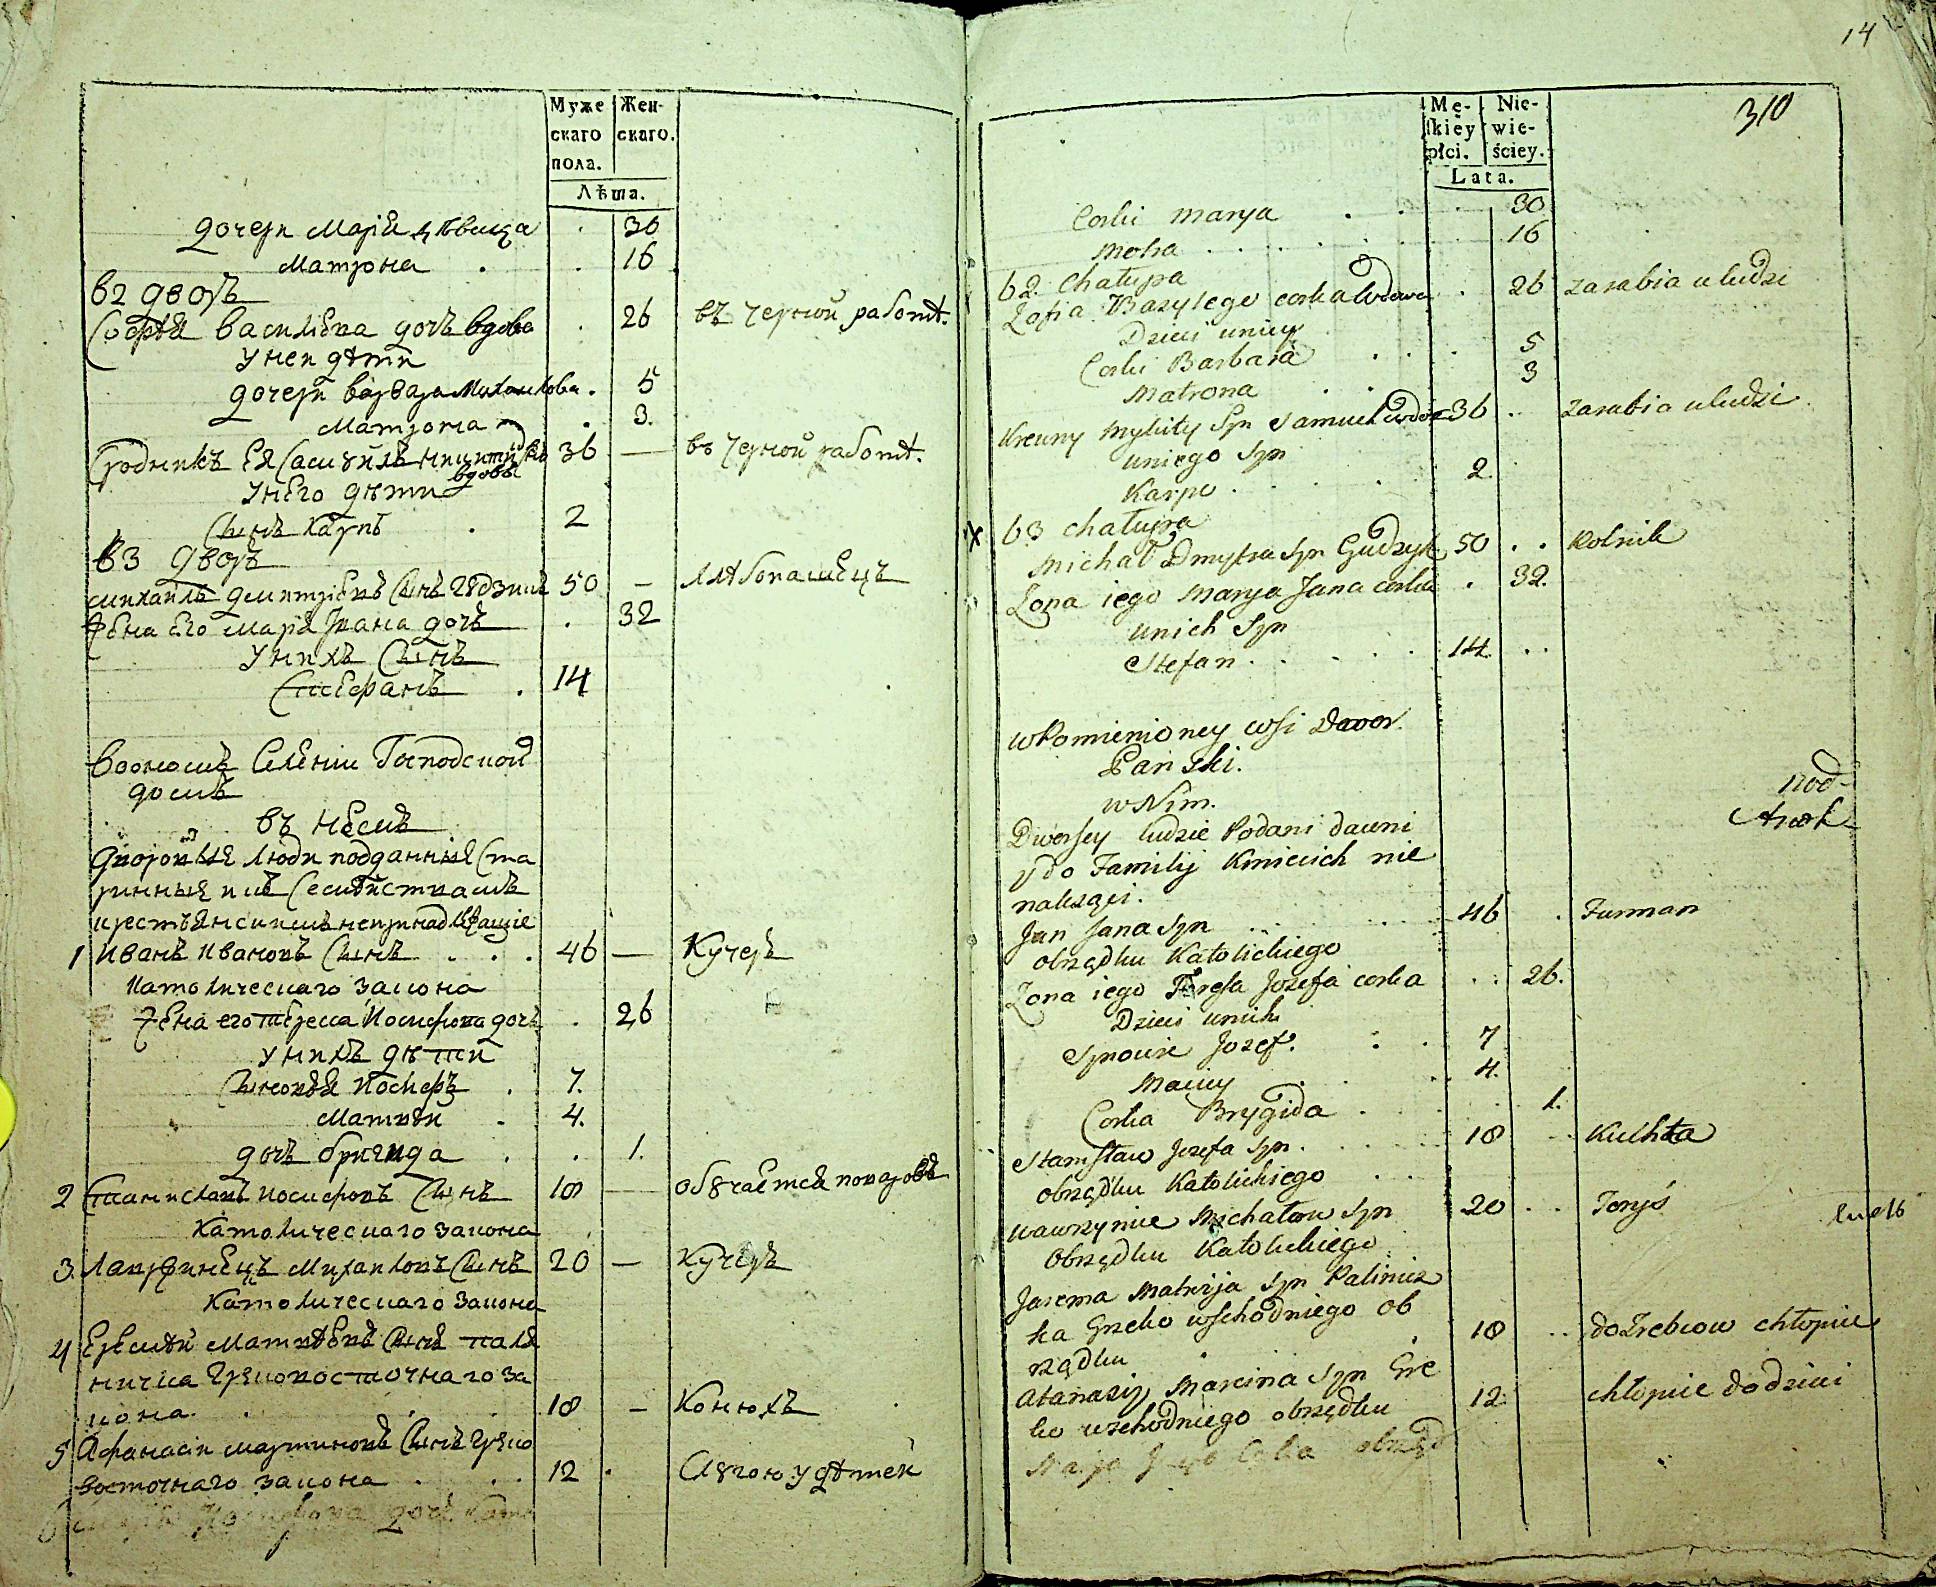 14
Муже
скаго
пола.
Жен-
скаго.
Лѣта.
дочери Марія дѣвица . 30
Матрона . . 16
62 дворъ
Софія Василіева дочь вдова . 26 въ черной работѣ.
У неи дѣти
дочери варвара Михаилова . 5
Матрона . 3.
Сродникъ Ея Самуйлъ Никитинъ 36 — въ черной работѣ.
вдовъ
У него дѣти
Сынъ Карпъ . 2
63 дворъ
Михаилъ Дмитріевъ Сынъ Гудзикъ 50 — хлѣбопашецъ
Жена Его Марія Ивана дочь . 32
У нихъ Сынъ
Стефанъ . 14
Воономъ Селении Господской
домъ
въ немъ
Дворовыя люди подданныя Ста
ринныя и къ Семействамъ
крестьянскимъ непринадлежащіе
1 Иванъ Ивановъ Сынъ . . . 46 — Кучеръ
Католическаго закона
Жена его Тересса Иосифова дочь . 26
У нихъ дѣти
Сыновья Иосифъ . 7.
Матвѣй . 4.
дочь бригида . . 1.
2 Станиславъ Иосифовъ Сынъ 18 — обучается поваровъ
Католическаго закона
3. Лаврѣнецъ Михаиловъ Сынъ 20 — Кучеръ
Католическаго закона
4 Еремѣй Матвѣевъ Сынъ пали
ничка Грековосточнаго за
кона . 18 — Конюхъ
5 Афанасіи Мартиновъ Сынъ Греко
восточнаго закона . . 12 . Слугою у дѣтей
дочь
310
Mę-
skiey
płci.
Nie-
wie-
ściey.
Lata.
Corki Marya . . . 30
Motra . . . . . 16
62. Chałupa
Zofia Bazylego corka wdowa . 26 zarabia u ludzi
Dzieci uniey
Corki Barbara . . . 5
Matrona . . 3
Krewny Mykity Syn Samuel wdow 36 . . zarabia u ludzi
uniego Syn
Karpo . . . 2
X 63 chałupa
Michał Dmytra Syn Gudzyk 50 . . Rolnik
Zona iego Marya Jana corka . 32.
unich Syn
Stefan . . . . . 14. . .
wPomienioney wsi Dwor
Panski.
wNim.
Dworscy ludzie Podani dawni
y do Familij Kmiecich nie
należący.
Jan Jana Syn . . . 46 . Furman
obrządku Katolickiego
Zona iego Teresa Jozefa corka . . 26.
Dzieci unich
Synowie Jozef. : . 7
Maciey . . . 4.
Corka Brygida . . . 1.
Stanisław Jozefa Syn . . . 18 . . Kuchta
obrządku Katolickiego . .
wawrzyniec Michałow Syn 20 . . Foryś
Obrządku Katolickiego
Jarema Matwija Syn Palinicz
ka Greko wschodniego ob
rządku . . 18 . . do Zrebcow chłopiec
Atanazij Marcina Syn Gre
ko wschodniego obrządku 12. chłopiec do dzieci
corka obrząd